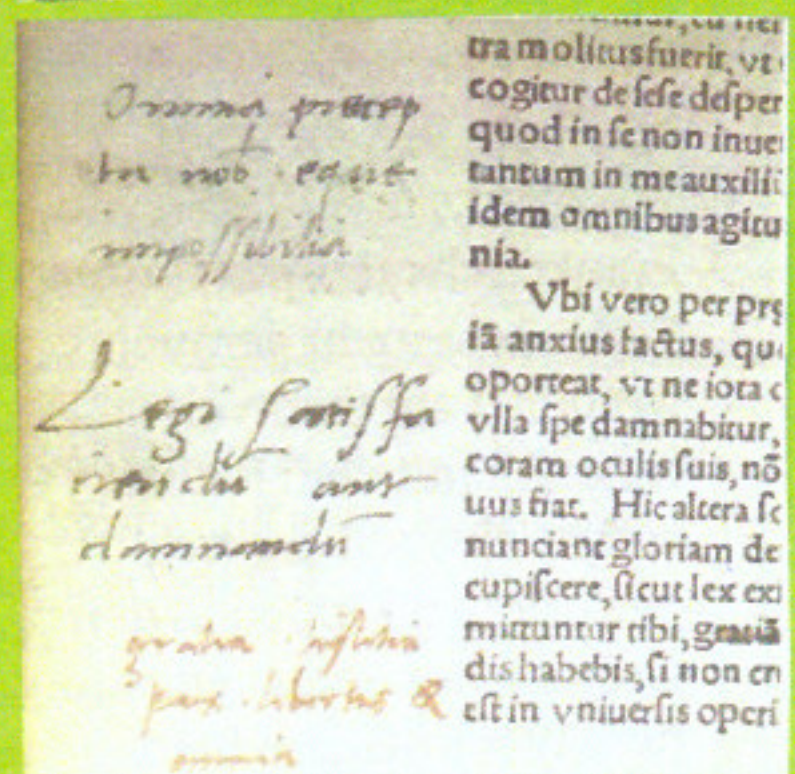 Omnia precep
ta nob equæ
impossibilia
Legi satisfa
ciendū aut
damnandū
gratia iustitia
pax libertas &
omnia
tra molitus fuerit, vt
cogitur de ſeſe deſper
quod in ſe non inue
tantum in me auxilii
idem omnibus agitu
nia.
Vbi vero per prę
iā anxius factus, qu
oporteat, vt ne iota
vlla ſpe damnabitur,
coram oculis ſuis, nō
uus fiat. Hic altera ſc
nunciant gloriam de
cupiſcere, ſicut lex exi
mittuntur tibi, gratiā
dis habebis, ſi non cr
eſt in vniuerſis operi